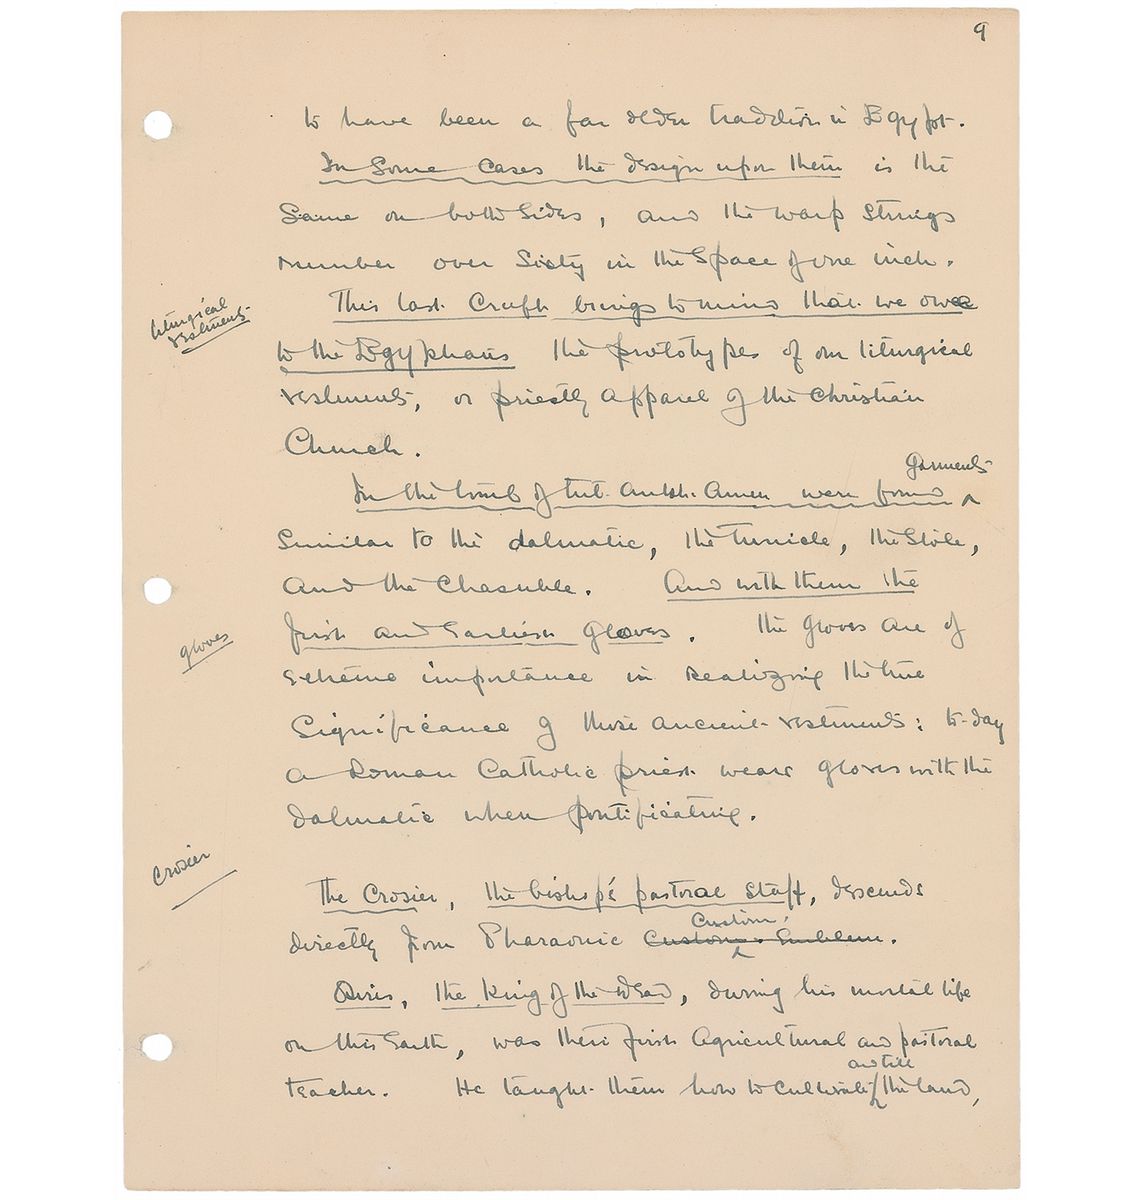 9
to have been a far older tradition in Egypt.
In some cases the design upon them is the
same on both sides, and the warp strings
number over sixty in the space of one inch.
liturgical
vestments
This last craft brings to mind that we owe
to the Egyptians the prototypes of our liturgical
vestments, or priestly apparel of the Christian
Church.
garments
In the tomb of Tut.ankh.Amen were found ^
similar to the dalmatic, the tunicle, the stole,
and the chasuble. And with them the
gloves
first and earliest gloves. The gloves are of
extreme importance in realizing the true
significance of those ancient vestments: to-day
a Roman Catholic priest wears gloves with the
dalmatic when pontificating.
crosier
The Crosier, the bishop's pastoral staff, descends
custom.
directly from Pharaonic custom. Emblem.
Osiris, the King of the Dead, during his mortal life
on this Earth, was their first Agricultural and pastoral
and till
teacher. He taught them how to cultivate the land,